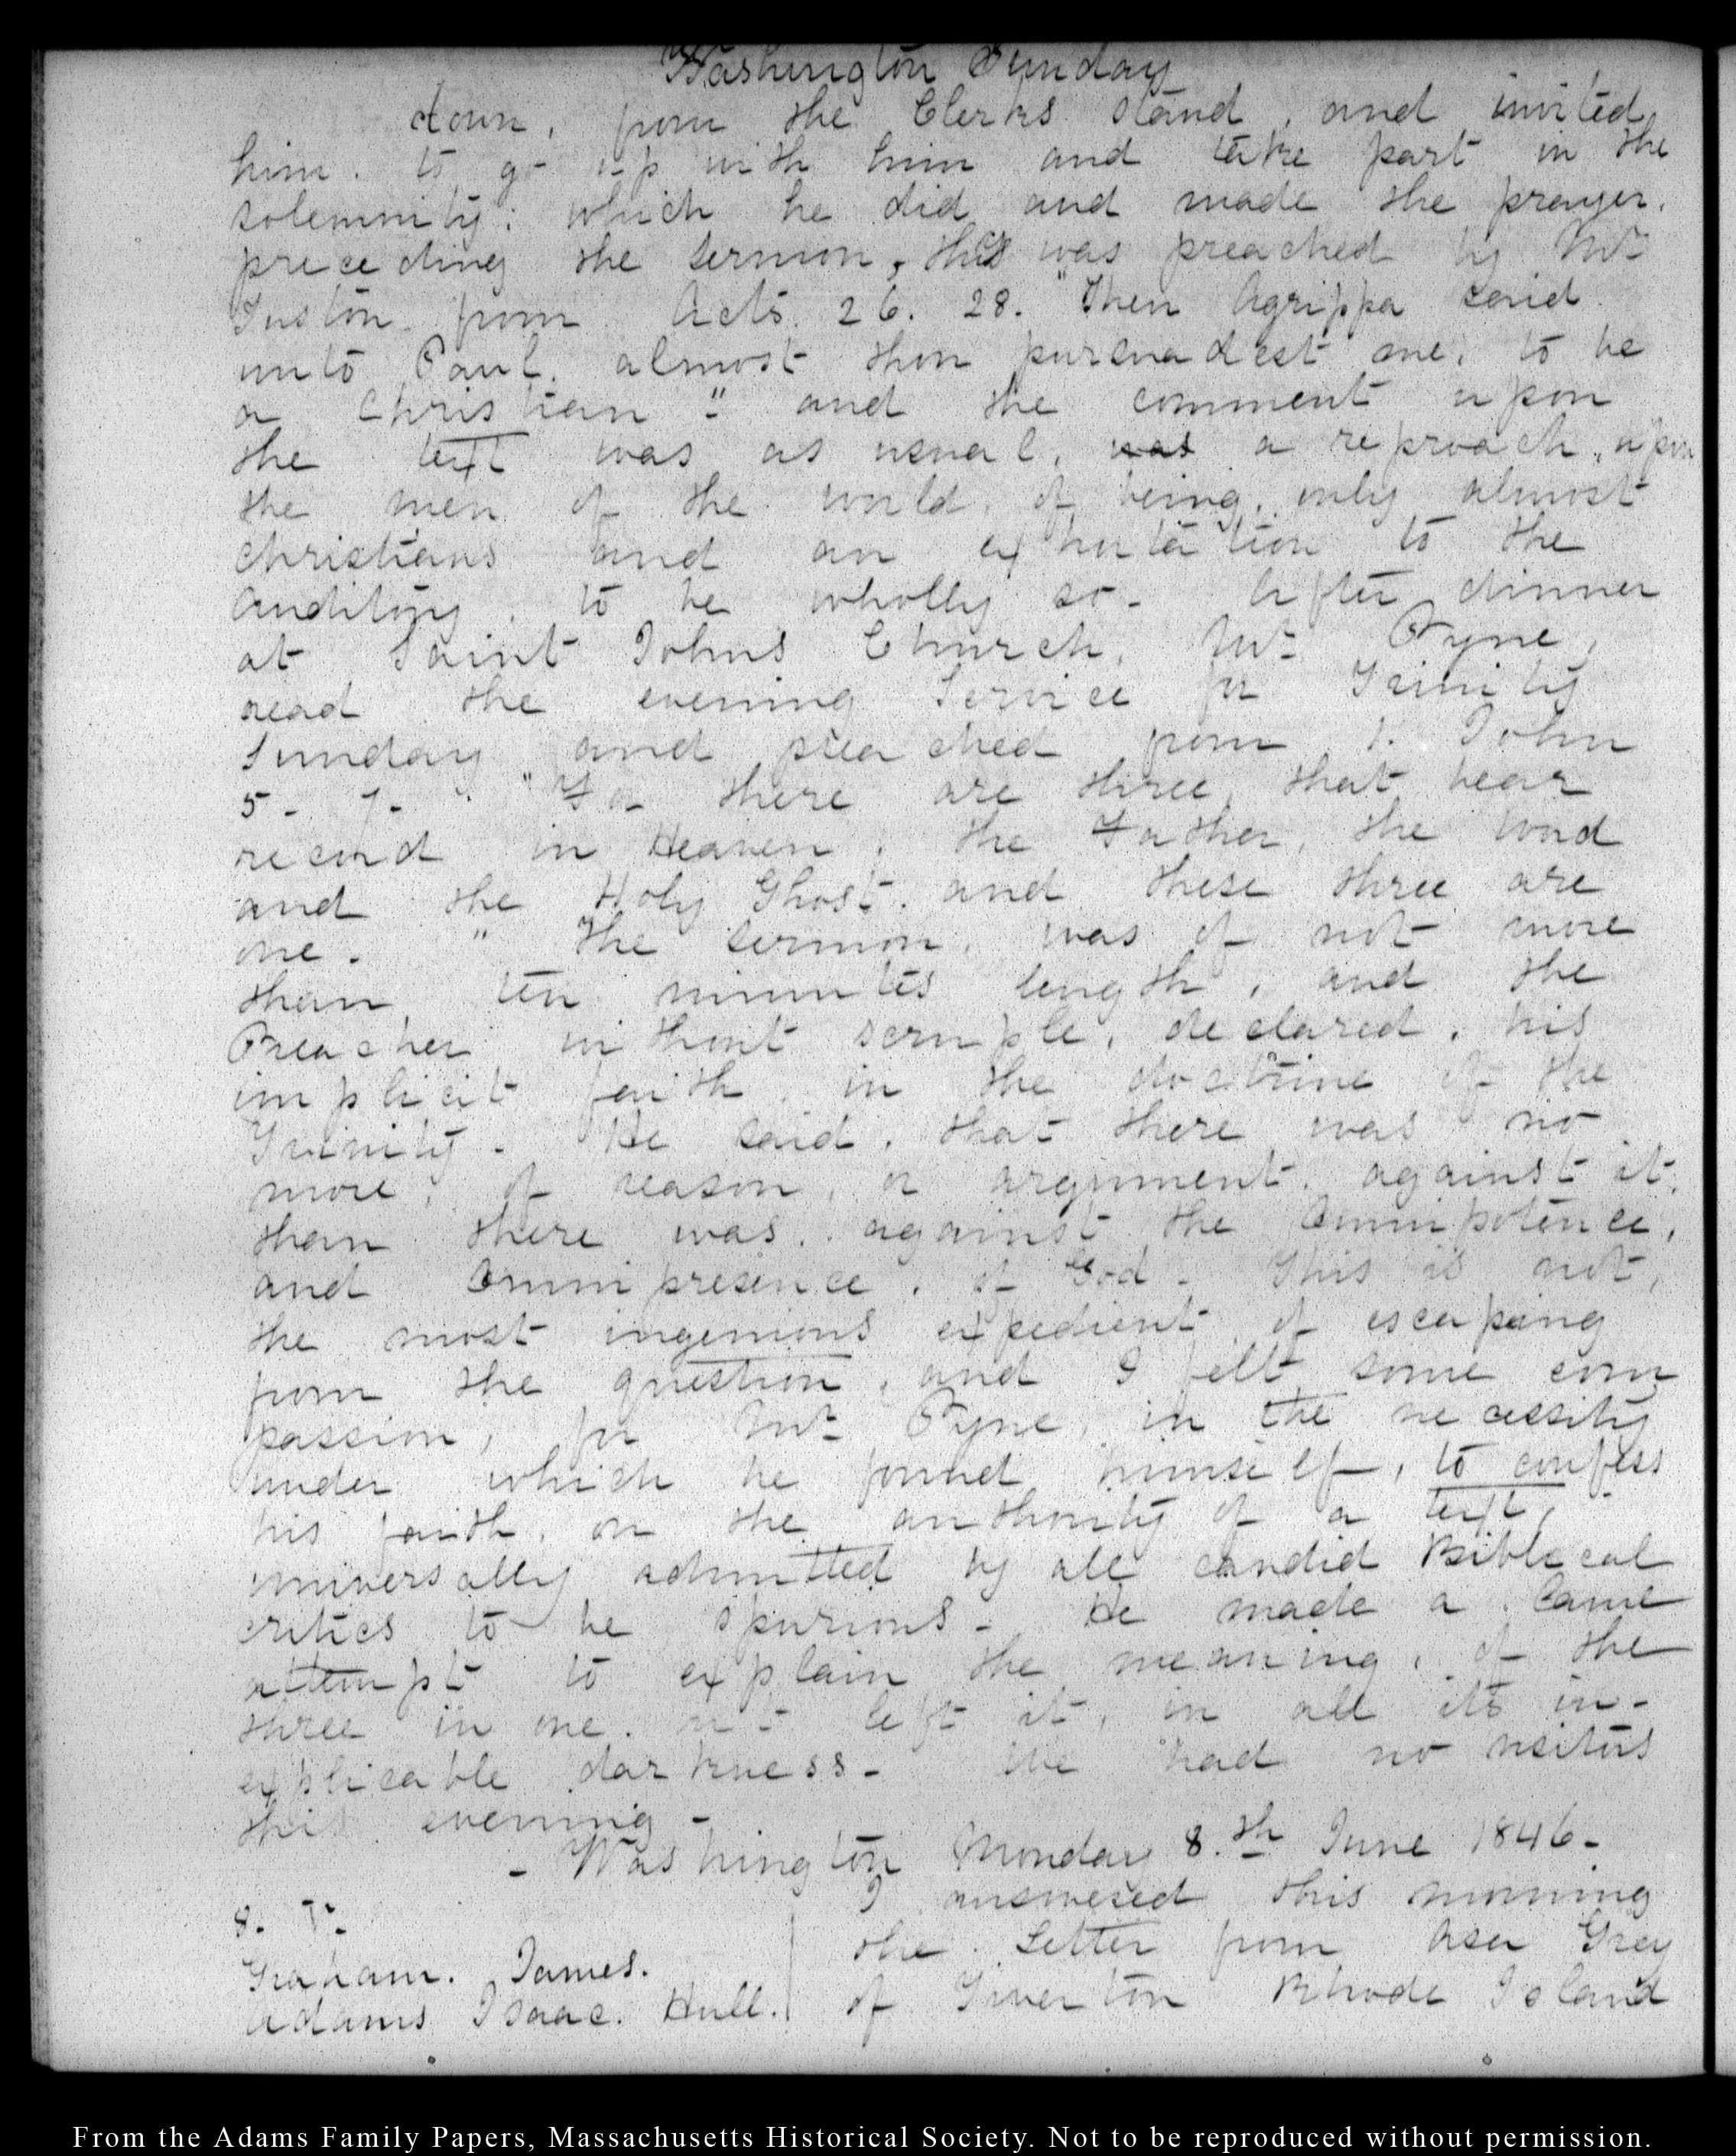 Washington Sunday
down, from the Clerks stand, and invited
him. to go up with him and take part in the
solemnity: which he did and made the prayer.
preceding the sermon, this was preached by Mr
Tuston from Acts. 26. 28. "Then Agrippa said
unto Paul. almost thou persuadest me, to be
a Christian" and the comment upon
the text was as usual, was a reproach, upon
the men of the world, of being, only almost
Christians and an exhortation to the
auditory, to be wholly so- After dinner
at Saint Johns Church, Mr Pyne,
read the evening Service for Trinity
Sunday and preached from 1. John
5- 7- "For there are three, that bear
record in Heaven, the Father, the word
and the Holy Ghost. and these three are
one." The sermon, was of not more
than ten minutes length, and the
Preacher without scruple, declared, his
implicit faith, in the doctrine of the
Trinity- He said, that there was no
more, of reason, or argument, against it,
than there was, against the Omnipotence,
and Omnipresence, of God- This is not,
the most ingenious expedient, of escaping
from the question, and I felt some com
passion, for Mr Pyne, in the necessity
under which he found himself, to confess
his faith, on the authority of a text,
universally admitted by all candid Biblical
critics to be spurious- He made a lame
attempt to explain the meaning, of the
three in one. left it, in all its in-
explicable darkness- We had no visitors
this evening-
- Washington Monday 8.th June 1846-
8. V:
Graham. James.
Adams Isaac. Hull.
I answered this morning
the Letter from Asa Grey
of Tiverton Rhode Island
From the Adams Family Papers, Massachusetts Historical Society. Not to be reproduced without permission.